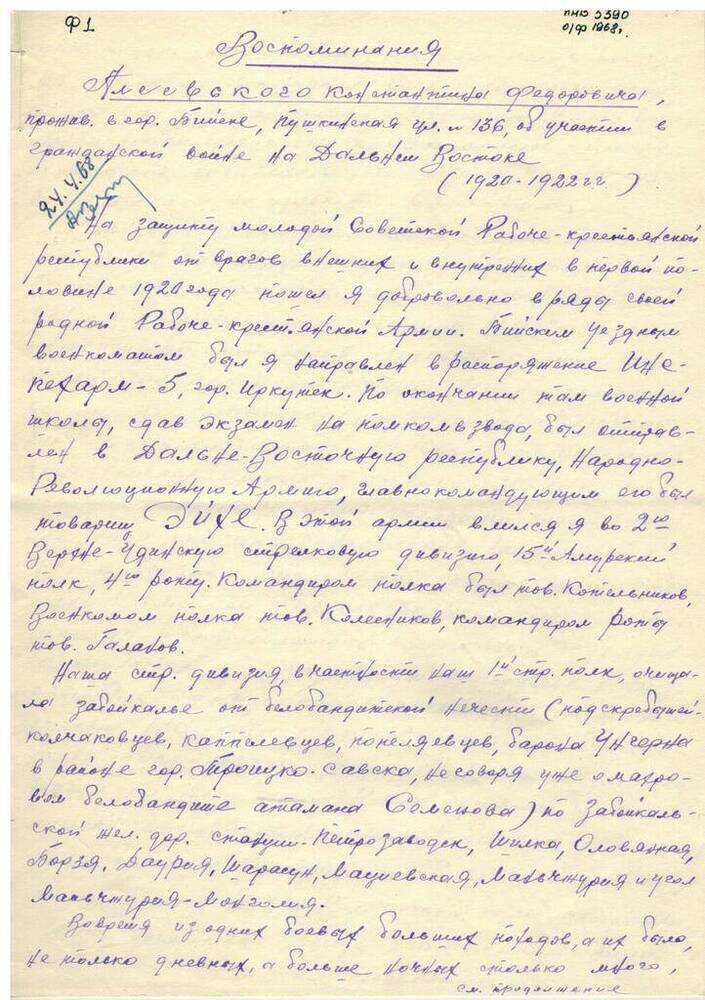 Ф1
ПНВ 5390
О/Ф 1968г.
Воспоминания
Алеевського Константина Федоровича,
прожив. в гор. Бийске, Пушкинская ул. № 136, об участии в
гражданской войне на Дальнем Востоке
(1920-1922 г.г.)
24.4.68
На защиту молодой Советской Рабоче-крестьянской
республики от врагов внешних и внутренних в первой по-
ловине 1920 года пошел я добровольно в ряды своей
родной Рабоче-крестьянской Армии. Бийским уездным
военкоматом был я направлен в распоряжение Инс-
пехарм-5, гор. Иркутск. По окончании там военной
школы, сдав экзамен на помкомвзвода, был отправ-
лен в Дальне-Восточную республику, Народно-
Революционную Армию, главнокомандующим его был
товарищ Эйхе. В этой армии влился я во 2ую
Верхне-Удинскую стрелковую дивизию, 15й Амурский
полк, 4ую роту. Командиром полка был тов. Котельников,
Военкомом полка тов. Колесников, командиром роты
тов. Галанов.
Наша стр. дивизия, в частности наш 1й стр. полк, очища-
ла забайкалье от белобандитской нечести (подскребышей-
колчаковцев, каппелевцев, попеляевцев, барона Унгерна
в районе гор. Троицко-савска, не говоря уже о махро-
вом белобандите атамана Семенова) по Забайкаль-
ской жел. дор. станции-Петрозаводск, Шилка, Оловянная,
Борзя, Даурия, Шарасун, Мациевская, Маньчжурия и угол
Маньчжурия-Монголия.
Вовремя из одних боевых больших походов, а их было,
не только дневных, а больше ночных столько много,
см. продолжение